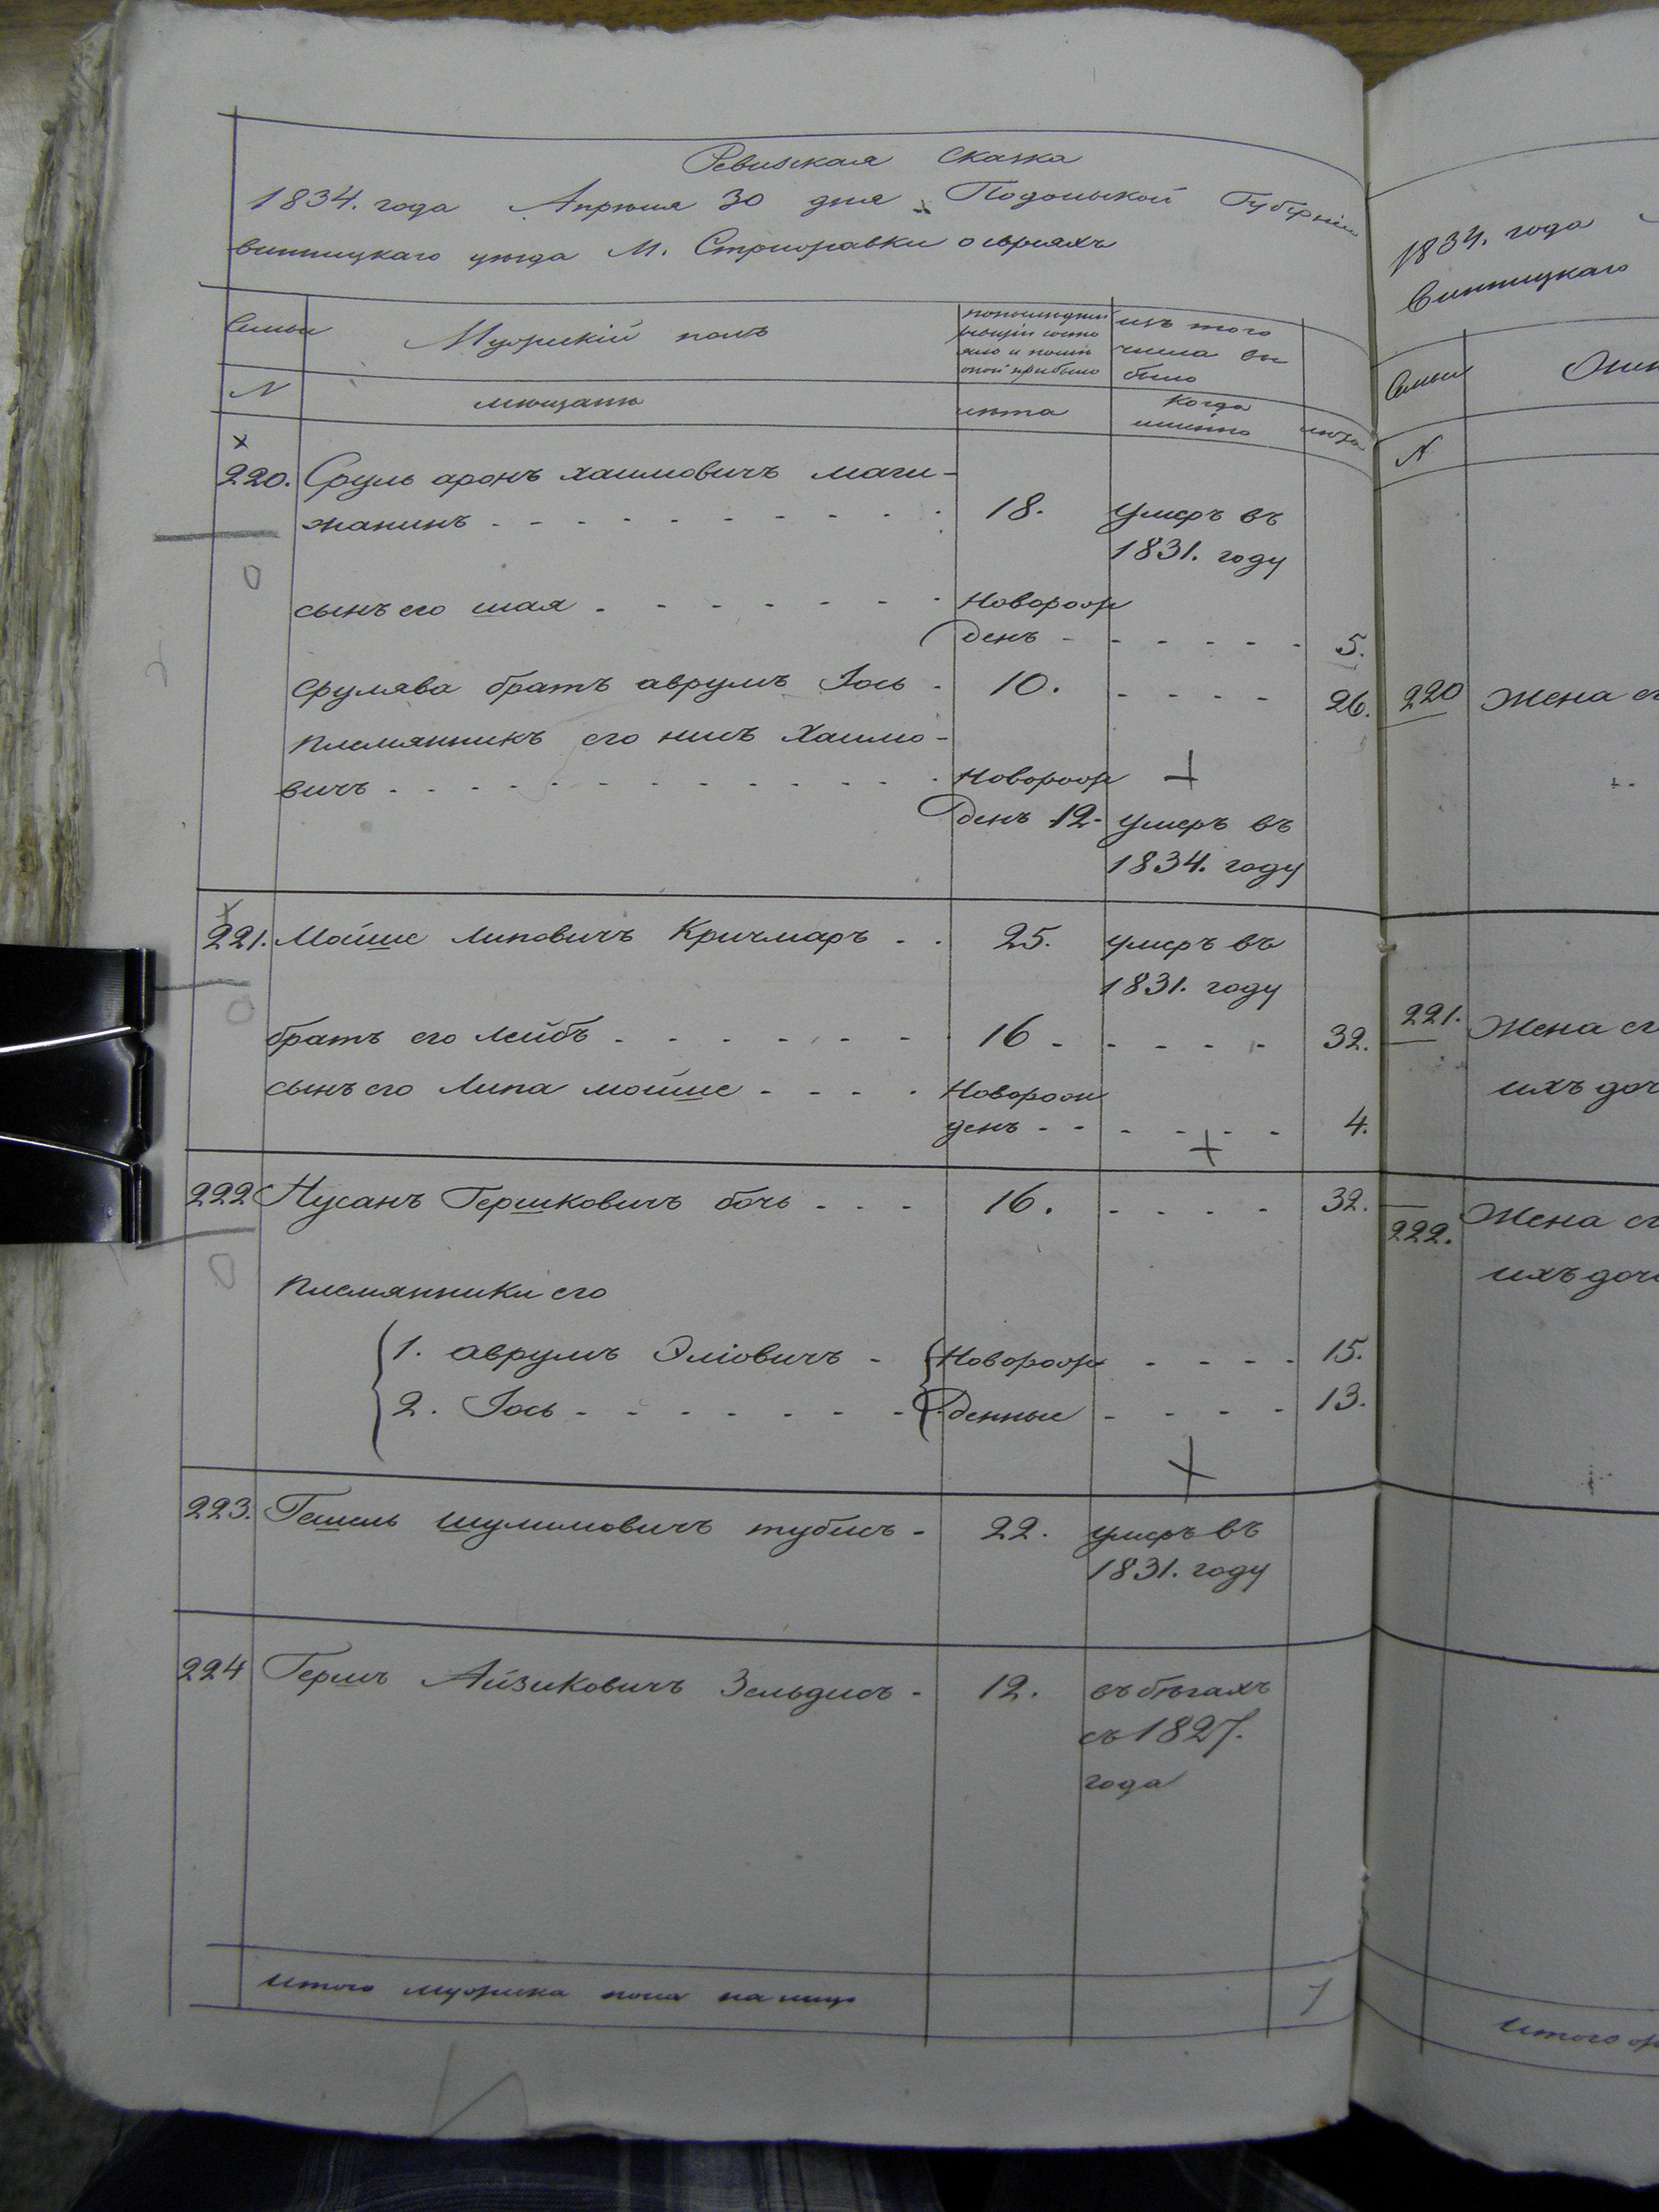 Ревизская Сказка
1834. года Апреля 30 дня Подольской Губерніи
винницкаго уезда М. Стрижавки о евреяхъ
Семьи
Мужескій полъ
изъ того
числа вы
было
N
мещане
лета
Когда
именно
лета
220. Сруль аронъ хаимовичъ маги-
жанинъ - - - - - - - - - - 18. умеръ въ
1831. году
сынъ его шая - - - - - - - Новорож
денъ - - - - - - 5.
срулява братъ аврумъ Іось - 10. - - - - 26.
племянникъ его нисъ Хаимо-
вичъ - - - - - - - - - - - - Новорож +
денъ 12- умеръ въ
1834. году
221. Мойше липовичъ Кричмаръ - - 25. умеръ въ
1831. году
братъ его лейбъ - - - - - - - 16 - - - - - 32.
сынъ его Липа мойше - - - - Новорож
денъ - - - - - - 4.
+
222 Нусанъ Гершковичъ бочь - - - 16. - - - - 32.
племянники его
1. аврумъ Эліовичъ - Новорож - - - - 15.
2. Іось - - - - - - - - денные - - - - 13.
+
223. Гешель шулимовичъ тубисъ - 22. умеръ въ
1831. году
224 Гершъ Айзиковичъ Зельдисъ - 12. въ бѣгахъ
съ 1827.
года
Итого мужеска пола на лицо 7
1834. года
Винницкаго
Семьи
N
220 Жена ег
221. Жена ег
ихъ доч
222. Жена ег
ихъ доч
Итого